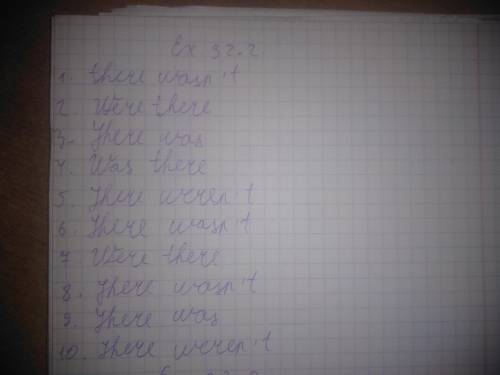 Ex 32.2
1. there wasn't
2. Were there
3. There was
4. Was there
5. There weren't
6. There wasn't
7. Were there
8. There wasn't
9. There was
10. There weren't